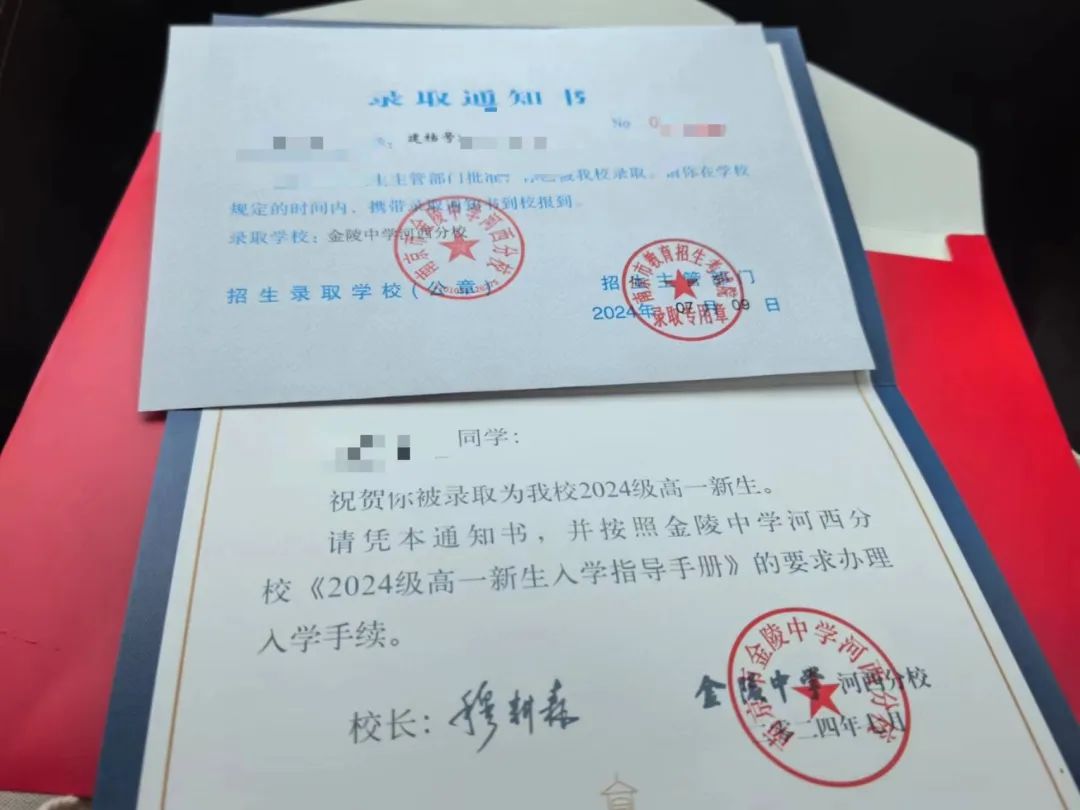 录取通知书
No
建档号:
生主管部门批准,
被我校录取。请你在学校
规定的时间内、携带录取通知书到校报到。
录取学校:金陵中学河西分校
招生录取学校(公章)
招生主管部门
2024年 07月 09日
南京市金陵中学河西分校
南京市教育招生考试院
录取专用章
同学:
祝贺你被录取为我校2024级高一新生。
请凭本通知书,并按照金陵中学河西分
校《2024级高一新生入学指导手册》的要求办理
入学手续。
校长:穆耕森
金陵中学河西分校
二〇二四年七月
南京市金陵中学河西分校